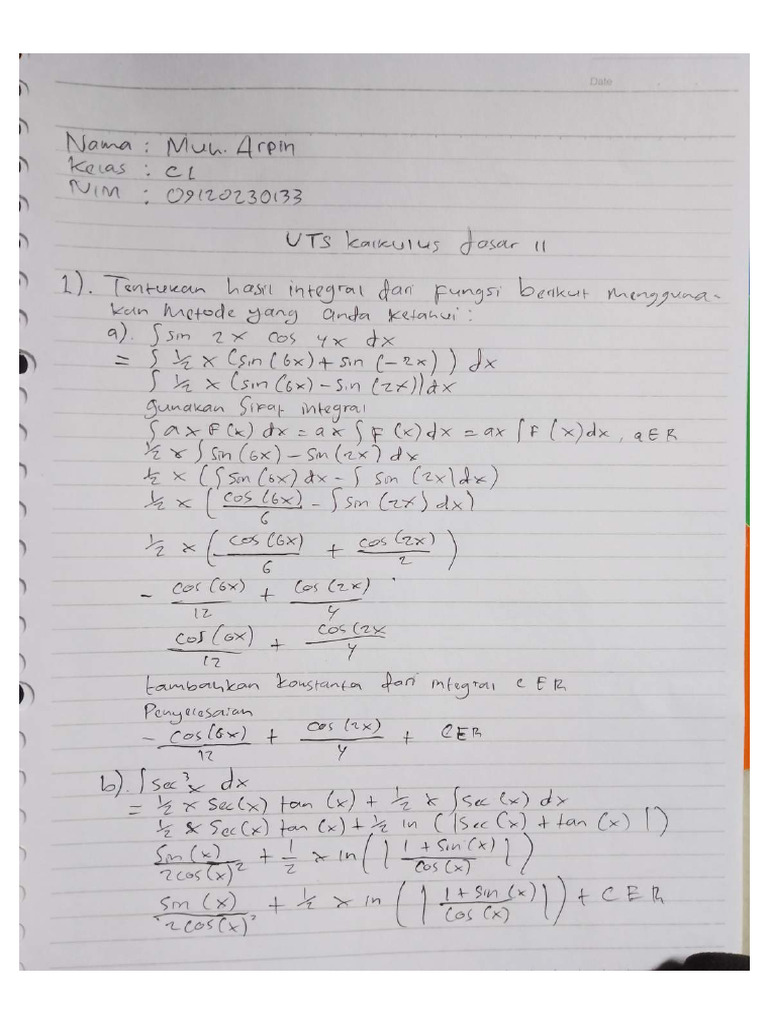 Date
Nama : Muh. Arpin
Kelas : C1
NIM : 09120230133
UTS Kalkulus dasar II
1). Tentukan hasil integral dari fungsi berikut mengguna-
kan metode yang anda ketahui :
a). ∫ sin 2x cos 4x dx
= ∫ ½ × (sin(6x) + sin(-2x)) dx
∫ ½ × (sin(6x) - sin(2x)) dx
gunakan sifat integral
∫ a × F(x) dx = a × ∫ F(x) dx = a × ∫ F(x) dx, a ∈ R
½ × ∫ sin(6x) - sin(2x) dx
½ × (∫ sin(6x) dx - ∫ sin(2x) dx)
½ × (cos(6x)/6 - ∫ sin(2x) dx)
½ × (-cos(6x)/6 + cos(2x)/2)
- cos(6x)/12 + cos(2x)/4
cos(6x)/12 + cos(2x/4
tambahkan konstanta dari integral C ∈ R
Penyelesaian
- cos(6x)/12 + cos(2x)/4 + C ∈ R
b). ∫ sec³x dx
= ½ × sec(x) tan(x) + ½ × ∫ sec(x) dx
½ × sec(x) tan(x) + ½ ln (|sec(x) + tan(x)|)
sin(x)/2cos(x)² + 1/2 × ln (|1 + sin(x)/cos(x)|)
sin(x)/2cos(x)² + ½ × ln (|1 + sin(x)/cos(x)|) + C ∈ R